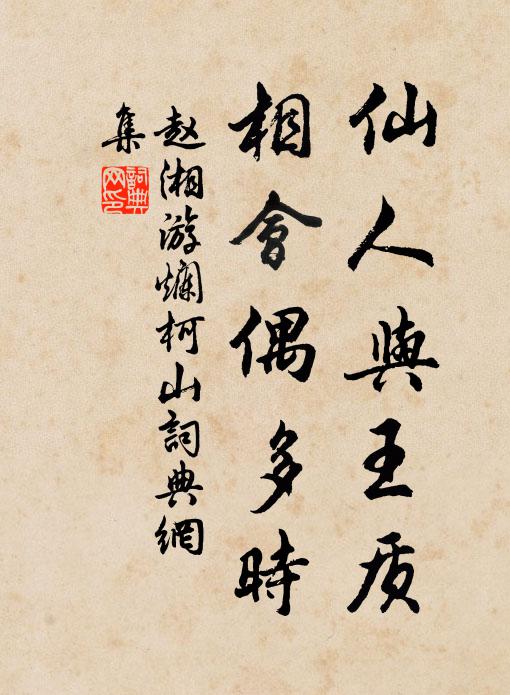 仙人與王质
相會偶多時
赵湘游爛柯山詞典網
集
詞典
网印